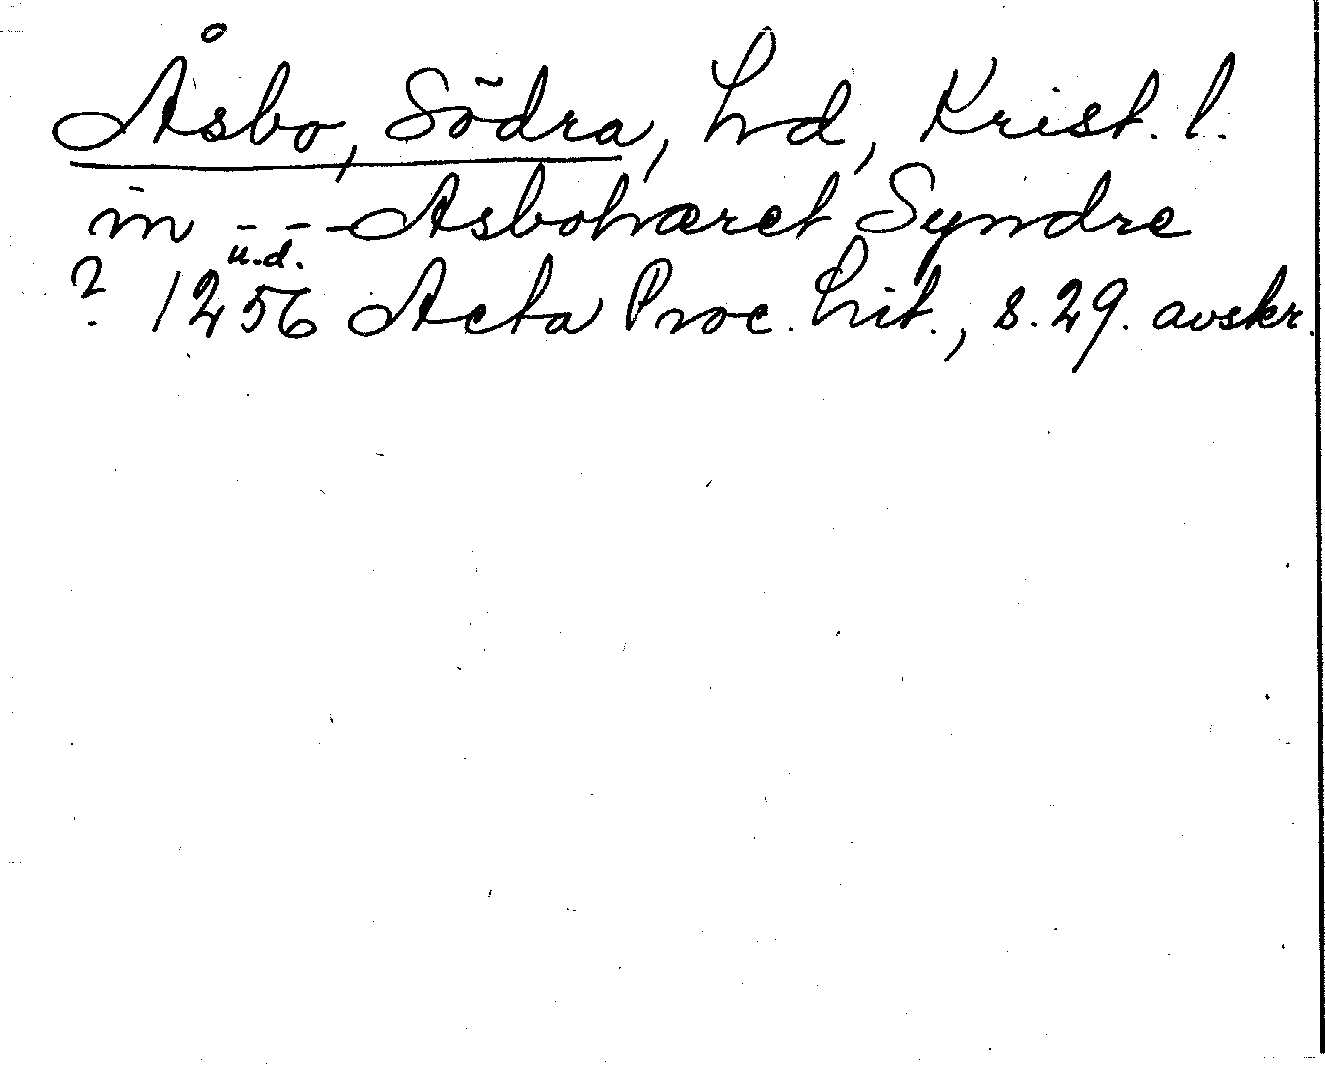 Åsbo, Södra, hd, Krist. l.
in - - - Asbohæret Syndre
u.d.
? 1256 Acta Proc. Lit., s. 29. avskr.